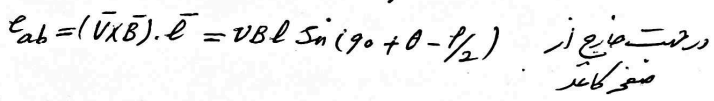 e_ab = (V̄×B̄).ℓ̄ = vBℓ Sin(90 + θ - ρ/2) در جهت خارج از
صفحه کاغذ